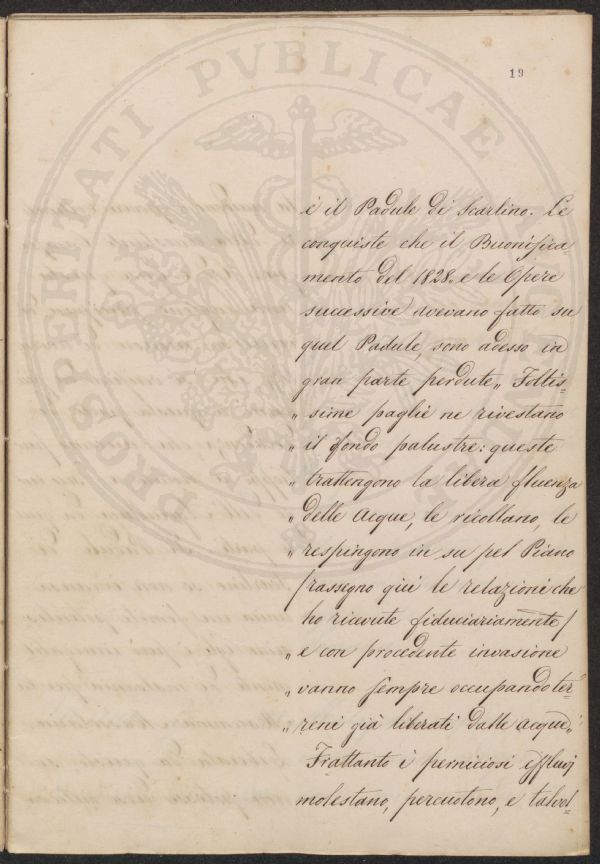 19
PROSPERITATI PVBLICAE
è il Padule di Scarlino. Le
conquiste che il Buonifica-
mento del 1828. e le Opere
successive avevano fatto su
quel Padule, sono adesso in
gran parte perdute „ Foltis=
„ sime paglie ne rivestano
„ il fondo palustre: queste
„ trattengono la libera fluenza
„ delle Acque, le ricollano, le
„ respingono in su pel Piano
/ rassegno qui le relazioni che
ho ricevute fiduciariamente /
„ e con procedente invasione
„ vanno sempre occupando ter=
„ reni già liberati dalle acque „
Frattanto i perniciosi effluvj
molestano, percuotono, e talvol=